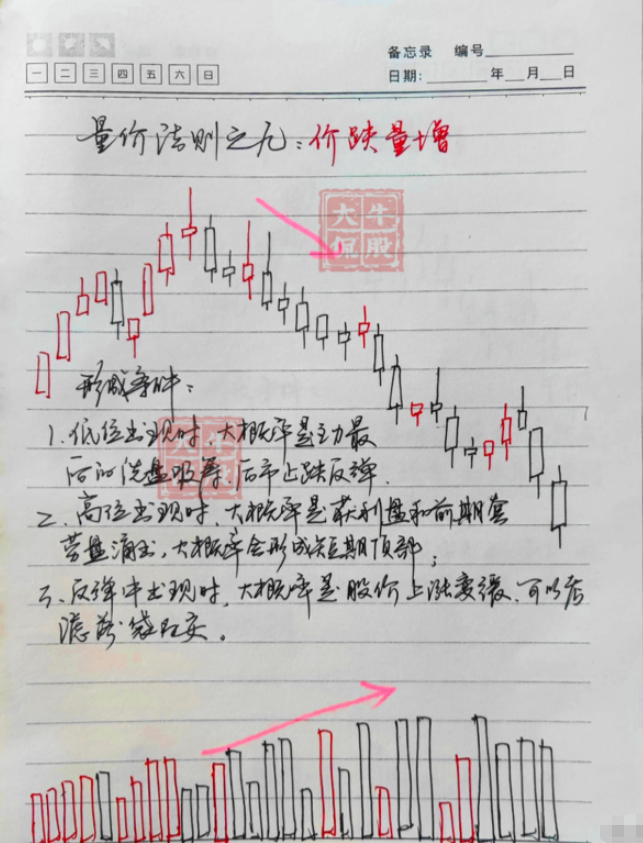 备忘录 编号
一 二 三 四 五 六 日
日期: 年 月 日
量价法则之九:价跌量增
大牛
侃股
形成条件:
1. 低位出现时,大概率是主力最
后的洗盘吸筹,后市止跌反弹.
2. 高位出现时,大概率是获利盘和前期套
劳盘涌出,大概率会形成短期顶部;
3. 反弹中出现时,大概率是股价上涨变缓,可以考
虑落袋为安。